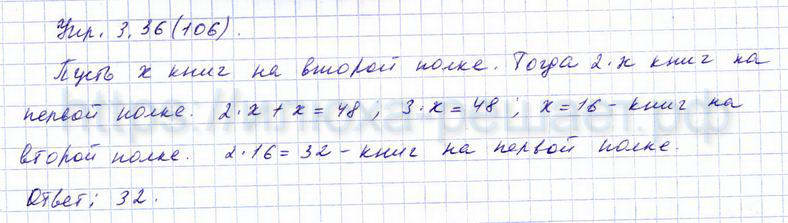 Упр. 3.36(106).
Пусть x книг на второй полке. Тогда 2·x книг на
первой полке. 2·x + x = 48 ; 3·x = 48 ; x = 16 - книг на
второй полке. 2·16 = 32 - книг на первой полке.
Ответ: 32.